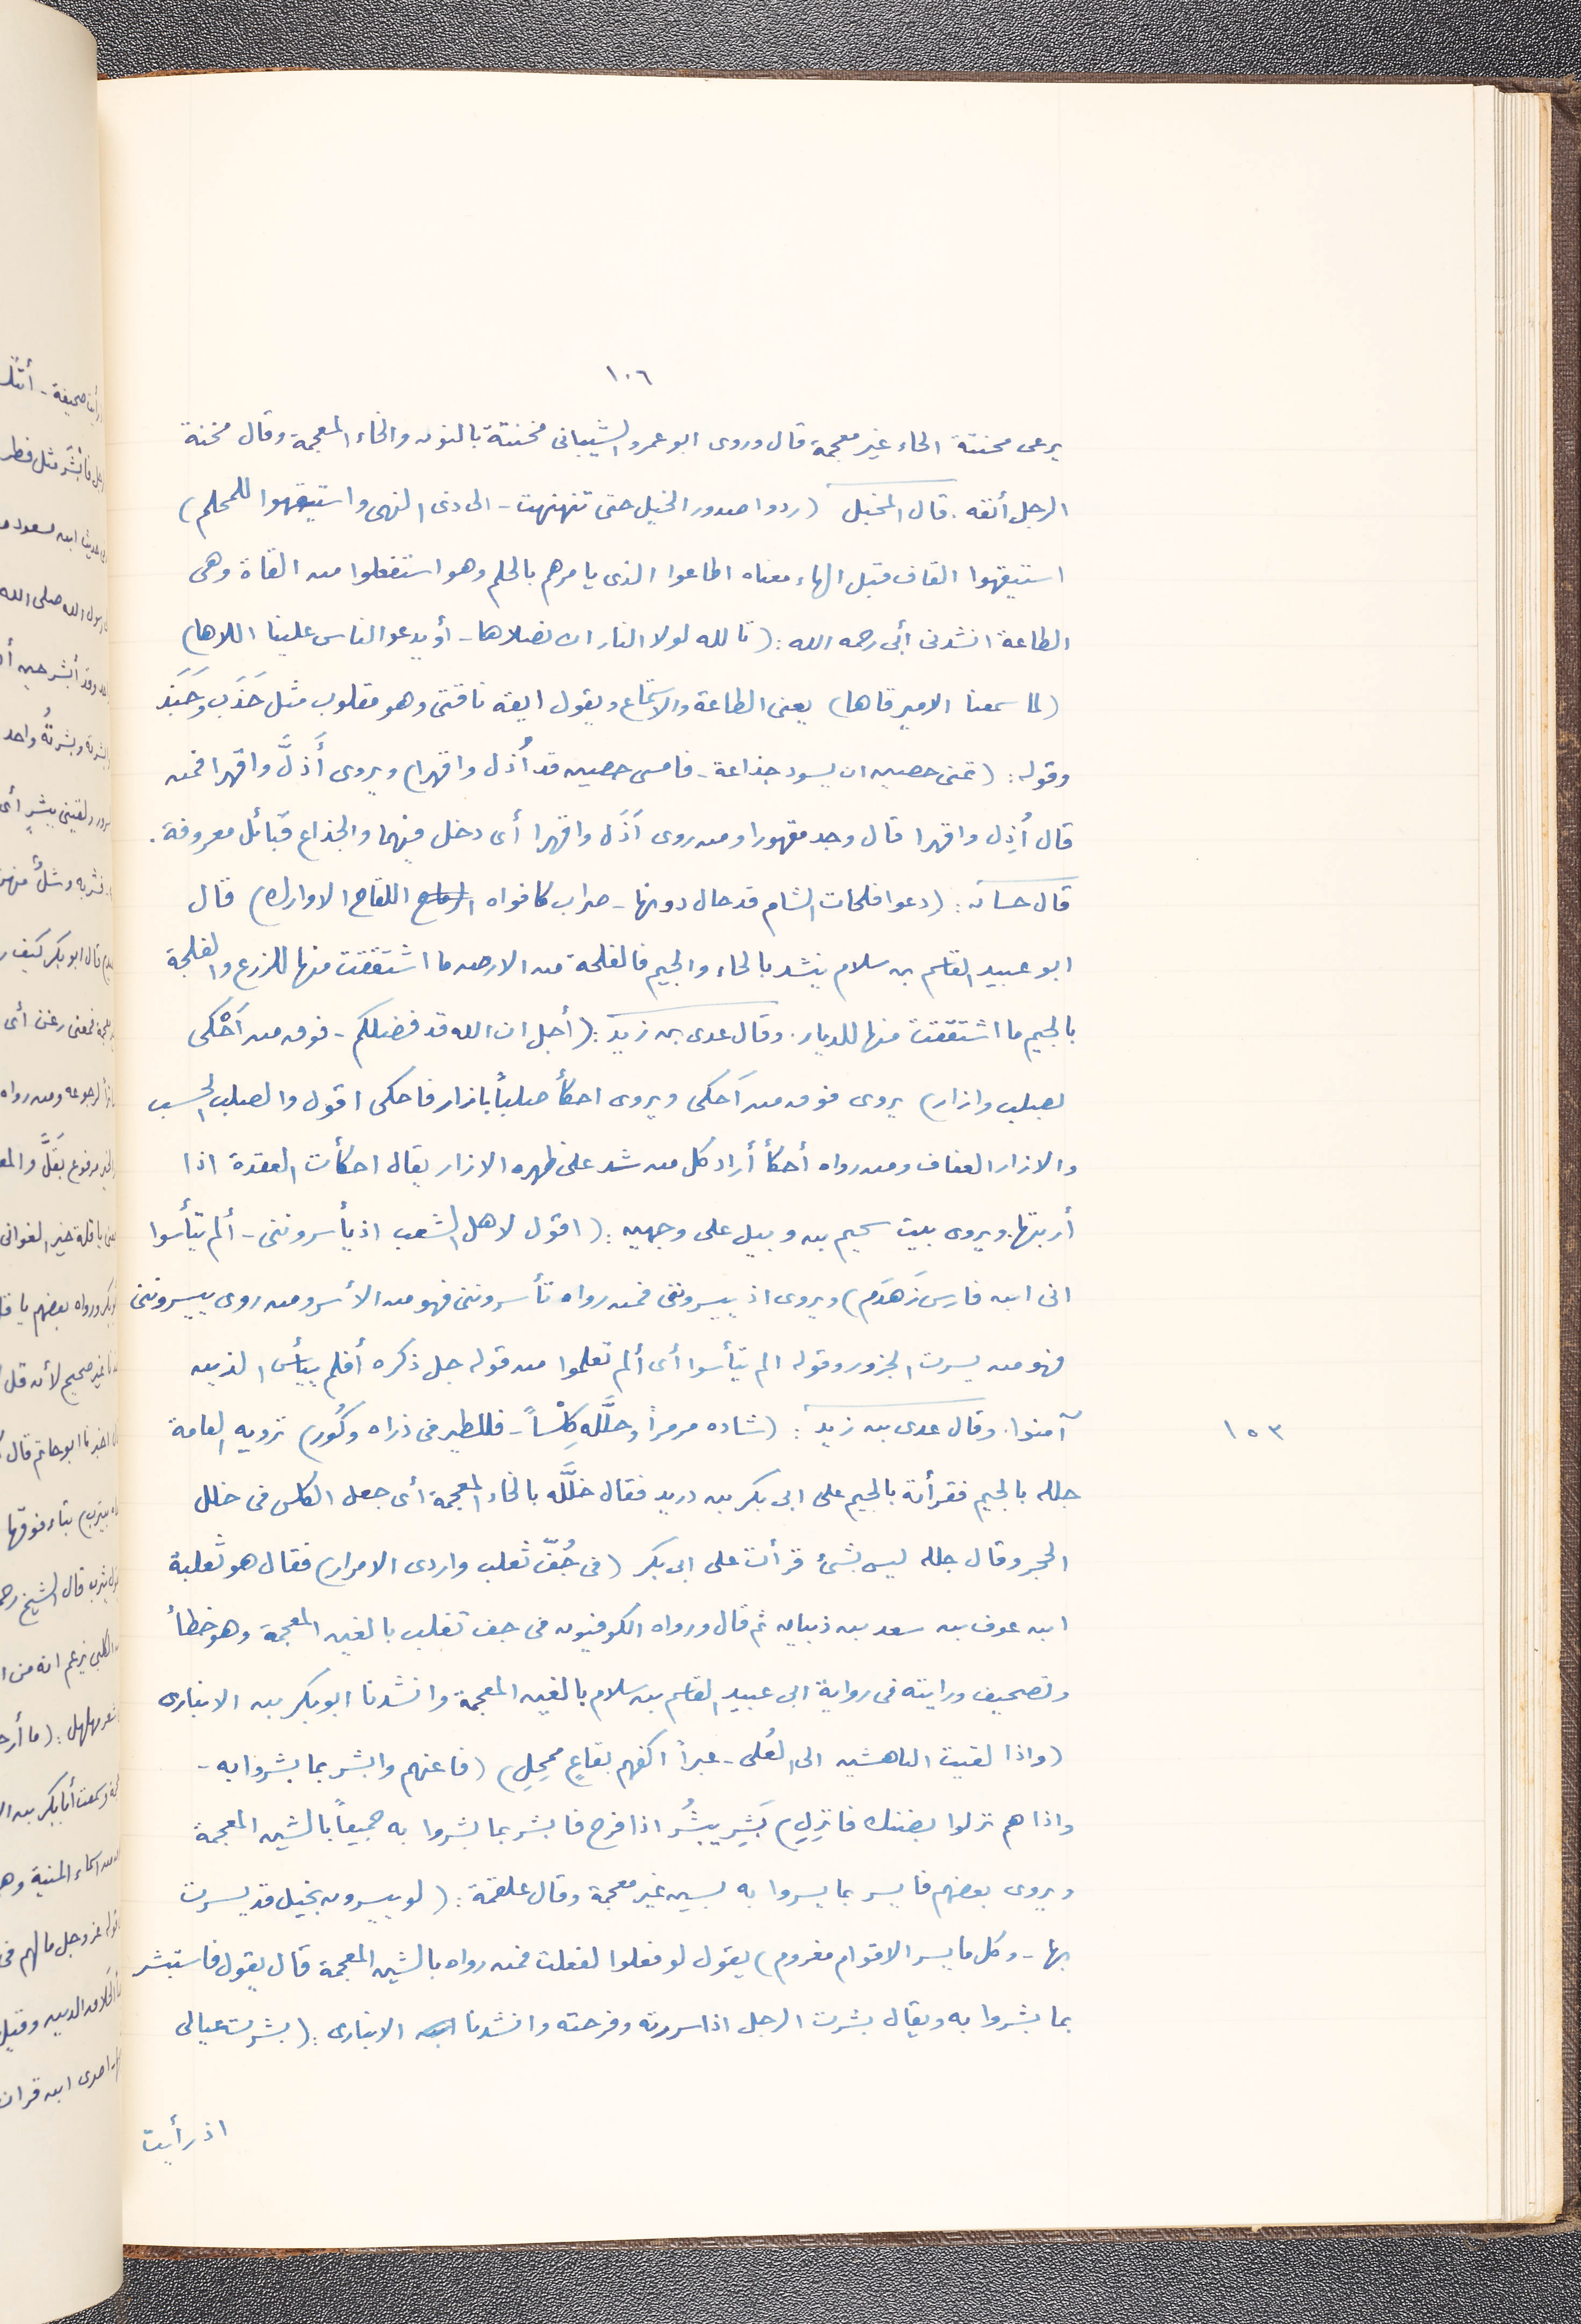 ١٠٦
يرعى محنتة الحاء غير معجمة قال وروى ابو عمرو الشيبانى مخنتة بالنون والخاء المعجمة وقال مخنة
الرجل أنفه . قال المخبل (ردوا صدور الخيل حتى تنهنهت - الى ذى النهى واستيقهوا للمحلم)
استيقهوا القاف قبل الهاء معناه اطاعوا الذى يامرهم بالحلم وهو استفعلوا من القاة وهى
الطاعة انشدنى أبى رحمه الله : (تالله لولا النار ان نصلاها - أو يدعو الناس علينا اللاها)
(لما سمعنا الامير قاها) يعنى الطاعة والاستماع ويقول ايقه ناقتى وهو مقلوب مثل جَذَب وجَبَذ
وقوله : (تمنى حصين ان يسود جذاعة - فامسى حصين قد أُذل واقهرا) ويروى أَذلَّ واقهرا فمن
قال أُذِل واقهرا قال وجد مقهورا ومن روى أَذَل واقهرا أى دخل فيهما والجذاع قبائل معروفة .
قال حسان : (دعوا فلحات الشام قد حال دونها - ضراب كافواه اللقاح الاوارك) قال
ابو عبيد القاسم بن سلام ينشد بالحاء والجيم فالفلحة من الارض ما اشتققت منها للزرع والفلجة
بالجيم ما اشتققت منها للديار . وقال عدى بن زيد : (أجل ان الله قد فضلكم - فوق من أَحْكى
بصلب وازار) يروى فوق من أحكى ويروى احكأ صلباً بازار فاحكى اقول والصلب الحسب
والازار العفاف ومن رواه أحكأ أراد كل من شد على ظهره الازار يقال احكأت العقدة اذا
أربتها . ويروى بيت سحيم بن وبيل على وجهين : (اقول لاهل الشعب اذ يأسروننى - ألم تيأسوا
انى ابن فارس زَهدَم) ويروى اذ ييسروننى فمن رواه تأسروننى فهو من الأسر ومن روى ييسروننى
فهو من يسرت الجزور وقوله الم تيأسوا أى ألم تعلموا من قوله جل ذكره أفلم ييأس الذين
آمنوا . وقال عدى بن زيد : (شاده مرمراً وخلَّله كِلْساً - فللطير فى ذراه وكُور) ترويه العامة
١٥٣
جلله بالجيم فقرأته بالجيم على ابى بكر بن دريد فقال خلَّله بالخاء المعجمة أى جعل الكلس فى خلل
الحجر وقال جلله ليس بشئ قرأت على ابى بكر (فى جُفّ ثعلب واردى الامرار) فقال هو ثعلبة
ابن عوف بن سعد بن ذبيان ثم قال ورواه الكوفيون فى جف تغلب بالغين المعجمة وهو خطأ
وتصحيف ورايته فى رواية ابى عبيد القاسم بن سلام بالغين المعجمة وانشدنا ابو بكر بن الانبارى
(واذا لقيت الباهشين الى العُلى - غبراً اكفهم بقاعٍ ممحِلِ) (فاعنهم وابشر بما بشروا به -
واذا هم نزلوا بضنك فانزِلِ) بَشِر يبشَر اذا فرح فابشر بما بشروا به جميعاً بالشين المعجمة
ويروى بعضهم فايسر بما يسروا به بسين غير معجمة وقال علقمة : (لو ييسرون بخيل قد يسرت
بها - وكل ما يسر الاقوام مغروم) يقول لو فعلوا لفعلت فمن رواه بالشين المعجمة قال يقول فاستبشر
بما بشروا به ويقال بشرت الرجل اذا سررته وفرحته وانشدنا الانبارى : (بشرت عيالى
اذ رأيت